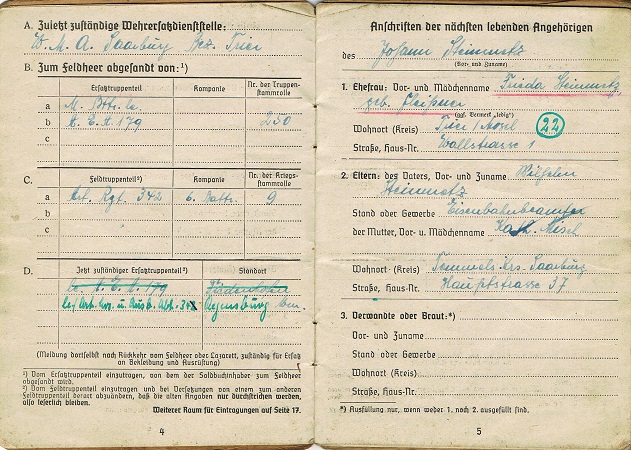 A. Zuletzt zuständige Wehrersatzdienststelle:
W. M. A. Saarburg Bez. Trier
B. Zum Feldheer abgesandt von:¹)
Ersatztruppenteil Kompanie Nr. der Truppenstammrolle
a
b A. E. A. 179 250
c
C. Feldtruppenteil²) Kompanie Nr. der Kriegsstammrolle
a Art. Rgt. 342 6. Battr. 9
b
c
D. Jetzt zuständiger Ersatztruppenteil²) Standort
A. E. A. 179
(Meldung dortselbst nach Rückkehr vom Feldheer oder Lazarett, zuständig für Ersatz
an Bekleidung und Ausrüstung)
¹) Vom Ersatztruppenteil einzutragen, von dem der Soldbuchinhaber zum Feldheer
abgesandt wird.
²) Vom Feldtruppenteil einzutragen und bei Versetzungen von einem zum anderen
Feldtruppenteil derart abzuändern, daß die alten Angaben nur durchstrichen werden,
also leserlich bleiben.
Weiterer Raum für Eintragungen auf Seite 17.
4
Anschriften der nächsten lebenden Angehörigen
des Johann Steinmetz
(Vor- und Zuname)
1. Ehefrau: Vor- und Mädchenname Frieda Steinmetz
geb.
(ggf. Vermerk „ledig")
Wohnort (Kreis) Trier/Mosel 22
Straße, Haus-Nr. Wallstrasse 1
2. Eltern: des Vaters, Vor- und Zuname
Steinmetz
Stand oder Gewerbe Eisenbahnbeamter
der Mutter, Vor- u. Mädchenname Kath.
Wohnort (Kreis) Temmels Krs. Saarburg
Straße, Haus-Nr. Hauptstrasse 37
3. Verwandte oder Braut:*)
Vor- und Zuname
Stand oder Gewerbe
Wohnort (Kreis)
Straße, Haus-Nr.
*) Ausfüllung nur, wenn weder 1. noch 2. ausgefüllt sind.
5